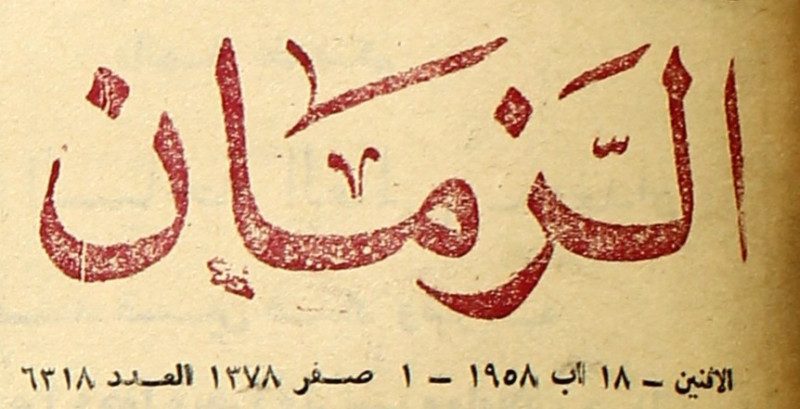 الزّمان
الاثنين - ١٨ اب ١٩٥٨ - ١ صفر ١٣٧٨ العدد ٦٣١٨